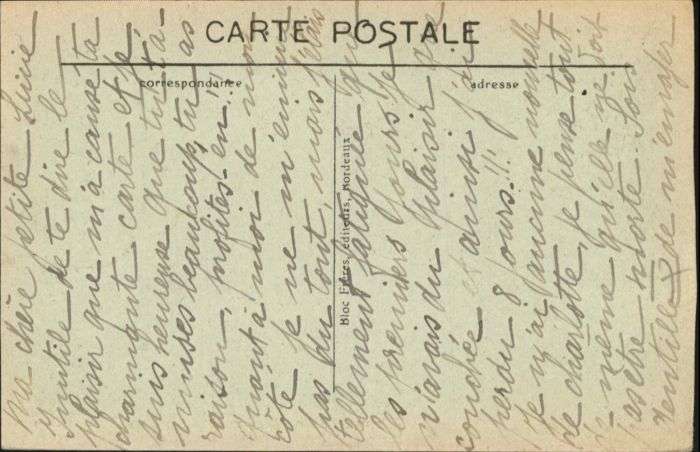 CARTE POSTALE
correspondance
adresse
Bloc Frères, éditeurs, Bordeaux
Ma chère petite
Inutile de te dire le
plaisir que m'a causé ta
charmante carte et je
suis heureuse que tu t'a-
muses beaucoup, tu as
raison, profites-en!!
Quant à moi de mon
côté je ne m'ennuie
pas du tout, mais j'étais
tellement fatiguée
les premiers jours je
n'avais du plaisir que
couchée et ainsi j'ai
perdu 8 jours!!
Je n'ai aucune nouvelle
de Charlotte, je pense tout
de même qu'elle ne doit
pas être morte. Sous
de m'emporter